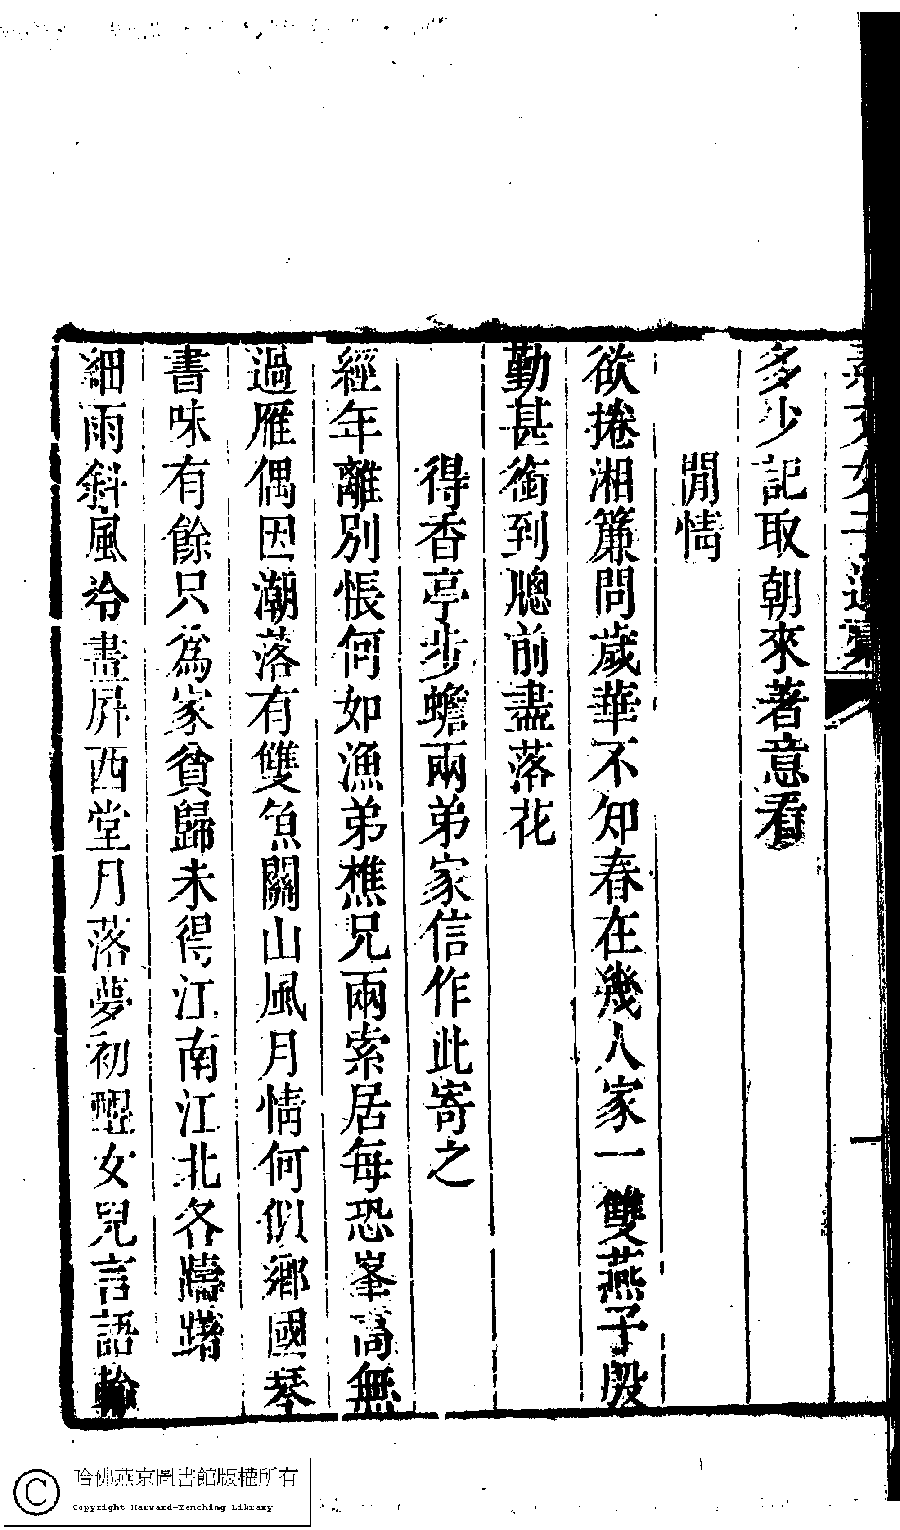 素文女子遺稾
一
多少記取朝來著意看
閒情
欲捲湘簾問歲華不知春在幾人家一雙燕子殷
勤甚銜到牕前盡落花
得香亭步蟾兩弟家信作此寄之
經年離別悵何如漁弟樵兄兩索居每恐峯高無
過雁偶因潮落有雙魚關山風月情何似鄉國琴
書味有餘只爲家貧歸未得江南江北各躊躇
細雨斜風冷畫屏西堂月落夢初醒女兒言語輸
哈佛燕京圖書館版權所有
Copyright Harvard-Yenching Library